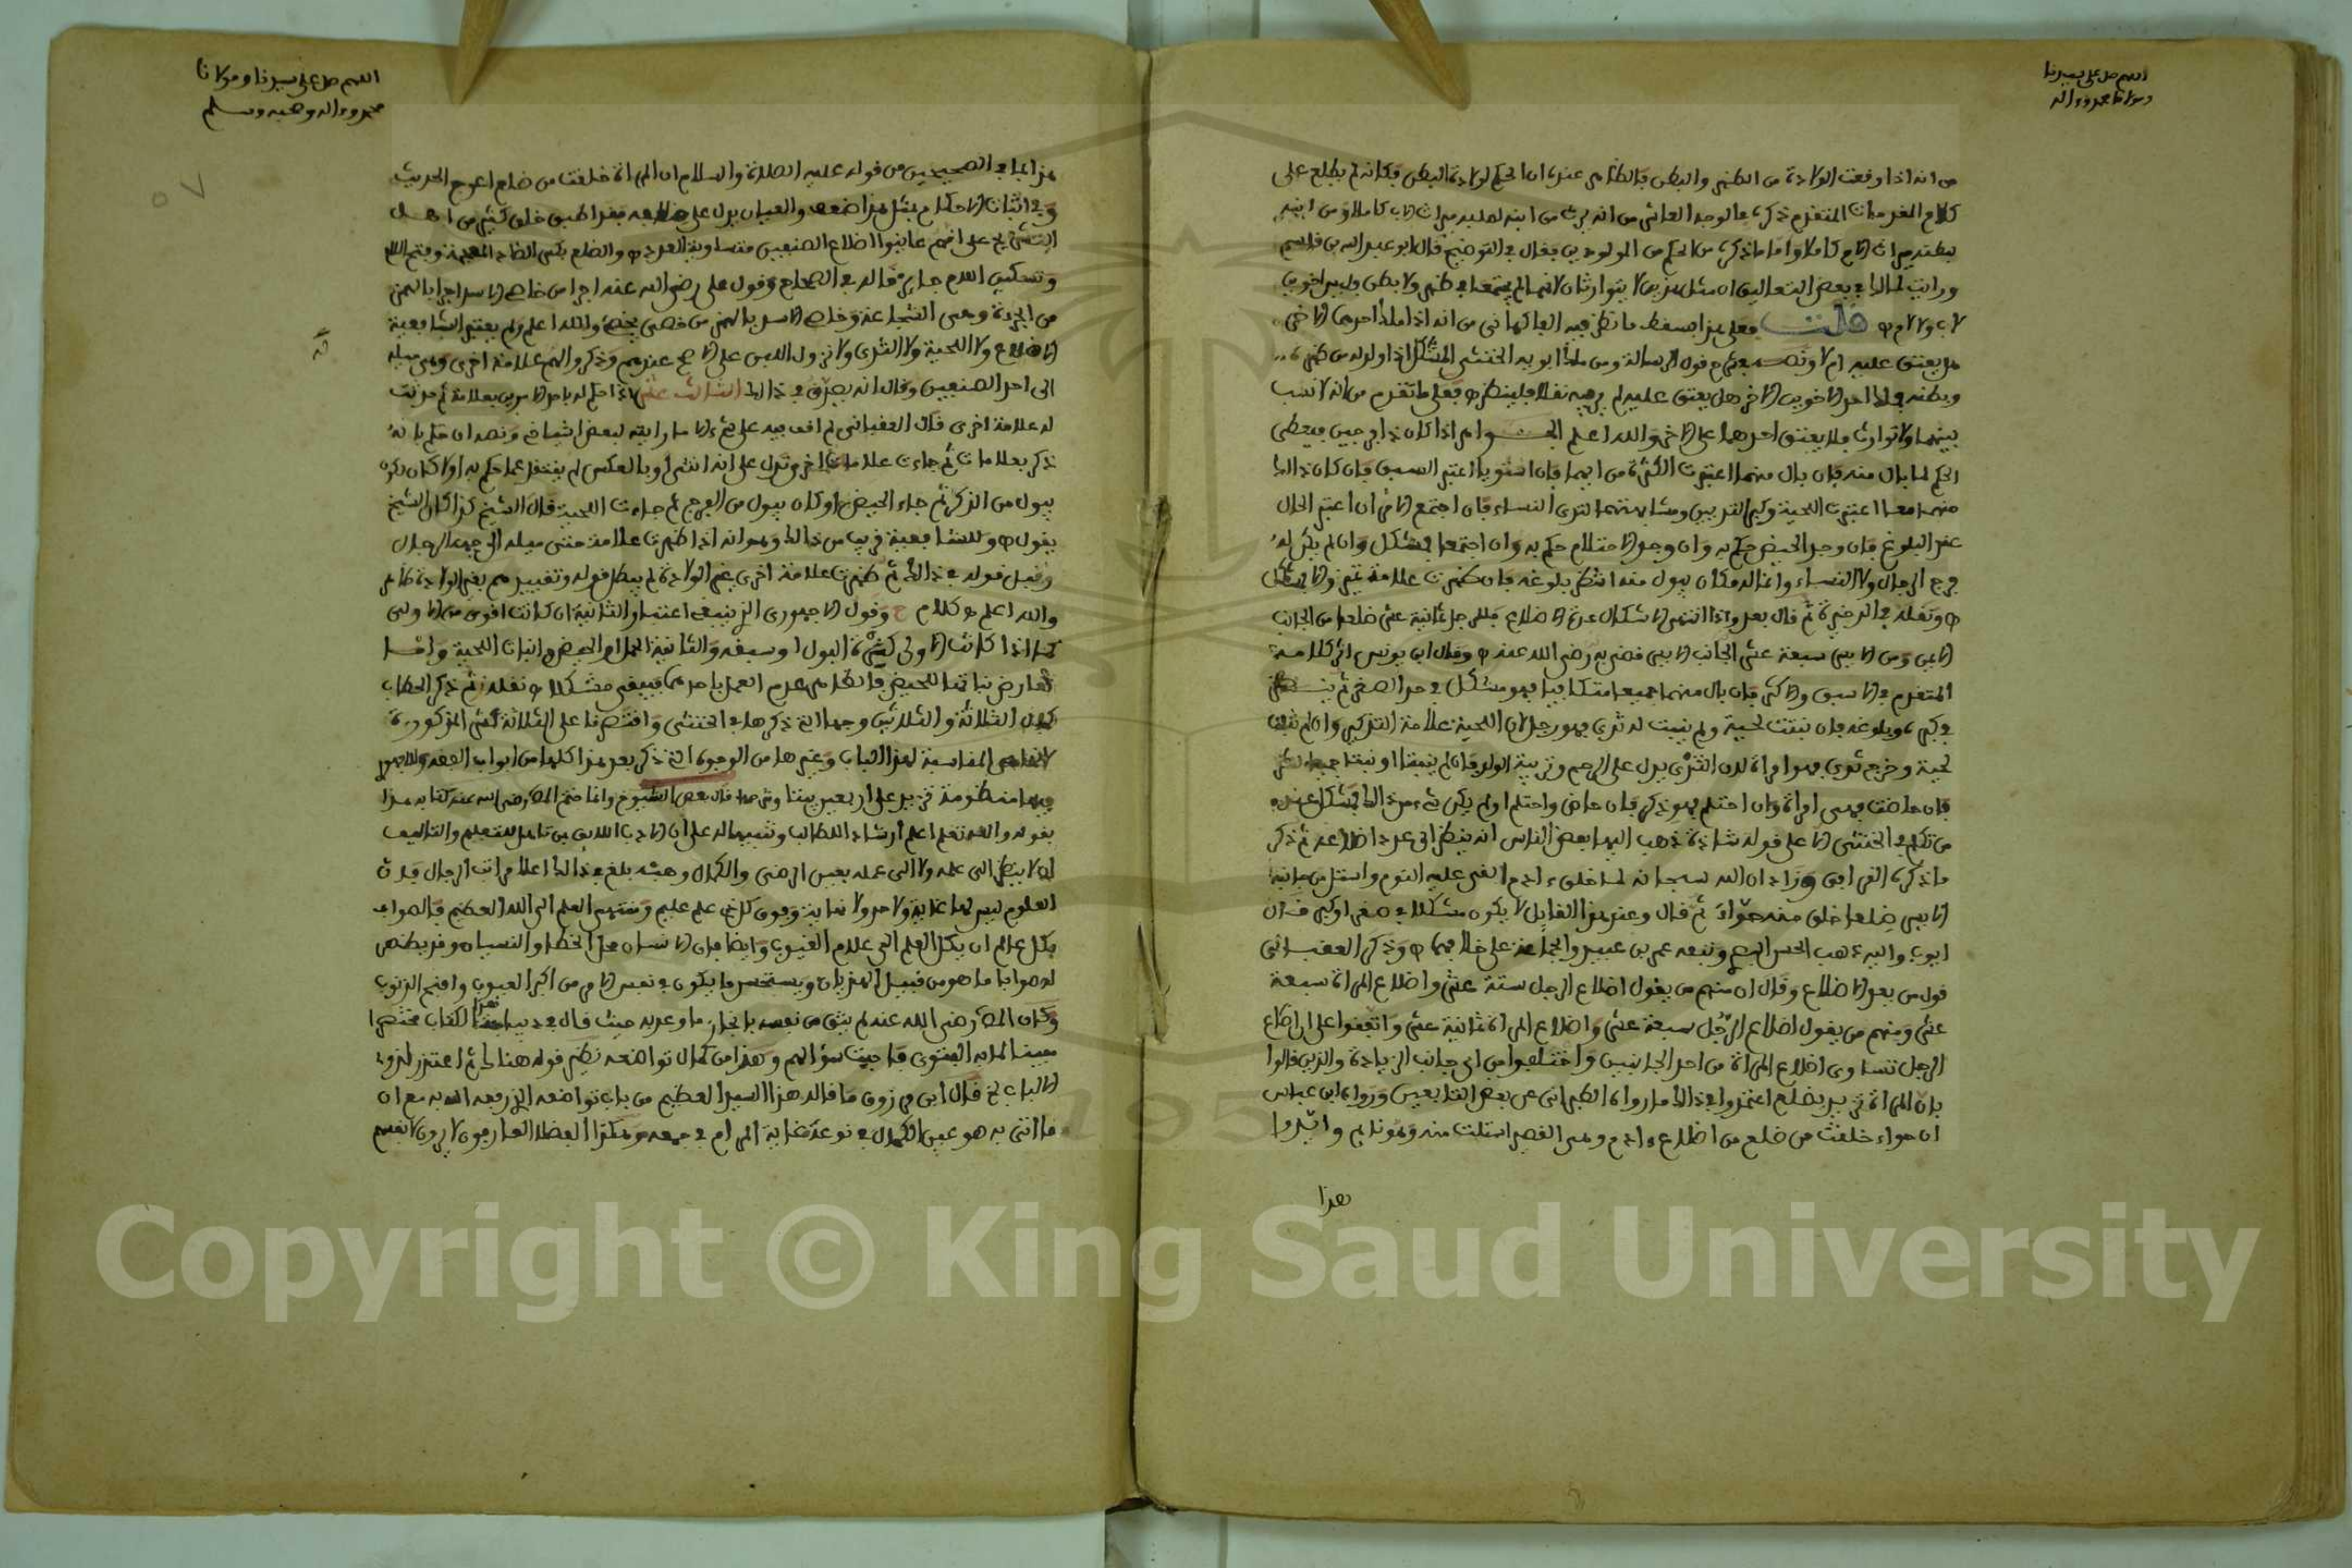 اللهم صل على سيدنا
ومولانا محمد وءاله
من انه اذا وقعت الولادة من الظهر والبطن فالظاهر عنده ان الحكم لولادة البطن فكانه لم يطلع على
كلام المقدمات المتقدم ذكره ءا لوجه العاشر من انه يرث من ابنه لصلبه ميراث الاب كاملا ومن ابنه
بطنه ميراث الام كاملا واما ما ذكره من الحكم من المولودين فقال في التوضيح قال ابو عبد الله بن قاسم
ورايت لمالك في بعض التعاليق ان مثل هذين لا يتوارثان لانهما لم يجتمعا في ظهر ولا بطن وليس اخوين
لاب ولا لام ه قلت فعلى هذا يسقط ما نظر فيه الفاكهاني من انه اذا ملك احدهما الاخر
هل يعتق عليه ام لا ونصه قول الرسالة ومن ملك ابويه الخنثى المشكل اذا ولد له من ظهره
وبطنه فملك احد الاخوين الاخر هل يعتق عليه لم ار فيه نقلا فلينظر ه فعلى ما تقدم من انه لا نسب
بينهما ولا توارث فلا يعتق احدهما على الاخر والله اعلم الجواب ام اذا كان ذا فرجين فيعطى
الحكم لما بال منه فان بال منهما اعتبرت الكثرة من ايهما فان استويا اعتبر السبق فان كان ذلك
منهما معا اعتبرت اللحية وكبر الثديين ومشابهتهما لثدي النساء فان اجتمع الامران اعتبر الحال
عند البلوغ فان وجد الحيض حكم به وان وجد الاحتلام حكم به وان اجتمعا فمشكل وان لم يكن له
فرج الرجال ولا النساء وانما له مكان يبول منه انتظر بلوغه فان ظهرت علامة تميز والا فمشكل
ه ونقله في الذخيرة ثم قال بعد واذا انتهى الاشكال عدت الاضلاع فللرجل ثمانية عشر ضلعا من الجانب
الايمن ومن الايسر سبعة عشر الجانب الايسر قضى به رضي الله عنه ه وقال ابن يونس اثر كلامه
المتقدم في الاسبق والاكثر فان بال منهما جميعا متكافيا فهو مشكل في حد الصغر ثم ينتظر
في كبره وبلوغه فان نبتت لحية ولم ينبت له ثدي فهو رجل لان اللحية علامة التذكير وان لم تنبت
لحية وخرج ثدي فهو امراة لان الثدي يدل على الرحم وتربية الولد فان لم ينبتا او نبتا جميعا نظر
فان حاضت فهي امراة وان احتلم فهو ذكر فان حاض واحتلم او لم يكن شيء من ذلك فمشكل عند
من تكلم في الخنثى الا على قوله شاذة ذهب اليها بعض الناس انه ينظر الى عدد اضلاعه ثم ذكر
ما ذكره القرافي وزاد ان الله سبحانه لما خلق ءادم القى عليه النوم واستل من جانبه
الايسر ضلعا خلق منه حواء ثم قال وعند هذا القايل لا يكون مشكلا في صغر او كبر قال
ابوب واليه ذهب الحسن البصري وتبعه عمر بن عبيد والجماعة على خلافهما ه وذكر العقباني
قول من يعد الاضلاع وقال ان منهم من يقول اضلاع الرجل ستة عشر واضلاع المراة سبعة
عشر ومنهم من يقول اضلاع الرجل سبعة عشر واضلاع المراة ثمانية عشر واتفقوا على ان اضلاع
الرجل تساوي اضلاع المراة من احد الجانبين واختلفوا من اي جانب الزيادة والذين قالوا
بان المراة تزيد بضلع اعتمدوا في ذلك ما رواه الطبراني عن بعض التابعين ورواه ابن عباس
ان حواء خلقت من ضلع من اضلاع ءادم وهي القصير استلت منه وهو نايم وايدوا
هذا
اللهم صل على سيدنا ومولانا
محمد وءاله وصحبه وسلم
هذا بما في الصحيحين من قوله عليه الصلاة والسلام ان المراة خلقت من ضلع اعوج الحديث
وفي اثبات الاحكام بمثل هذا ضعف والعيان يدل على ضعفه فقد اطبق خلق كثير من اهل
التشريح على انهم عاينوا اضلاع الصنفين متساوية العدد ه والضلع بكسر الضاد المعجمة وفتح اللام
وتسكين اللام جايز قاله في الصحاح وقول علي رضي الله عنه اجرا من خاصي الاسد اجرا بالهمز
من الجرءة وهي الشجاعة وخاصي الاسد بالهمز من خصى يخصي والله اعلم ولم يعتبر الشافعية
الاضلاع ولا اللحية ولا الثدي ولا نزول اللبن على الاصح عندهم وذكروا لهم علامة اخرى وهي ميله
الى احد الصنفين وقال انه يصدق في ذلك الثالث عشر اذا حكم له باحد الامرين بعلامة ثم حدثت
له علامة اخرى قال العقباني لم اقف فيه على شيء الا ما رايته لبعض اشياخ ونصه ان حكم بانه
ذكر بعلامات ثم جاءت علامات اخر تدل على انه انثى او بالعكس لم ينتقل عما حكم به اولا كان يكون
يبول من الذكر ثم جاء الحيض او كان يبول من الفرج ثم جاءت اللحية قال الشيخ كذا كان الشيخ
يقول ه وللشافعية قريب من ذلك وهو انه اذا ظهرت علامة خنثى ميله الى جهة الرجال
وقبل قوله في ذلك ثم ظهرت علامة اخرى غير الولادة لم يبطل قوله وتقييدهم بغير الولادة ظاهر
والله اعلم ه كلام ح وقول الاجهوري الذي ينبغي اعتبار الثانية ان كانت اقوى من الاولى
كما اذا كانت الاولى كثرة البول او سبقه والثانية الحمل او الحيض او انبات اللحية وامـا
تعارض نبات اللحية للحيض فالظاهر عدم العمل باحدهما فيبقى مشكلا ه نقله ثم ذكر الحطاب
كمال الثلاثة والثلاثين وجها التي ذكرها في الخنثى واقتصرنا على الثلاثة عشر المذكورة
لانها هي المناسبة لهذا الباب وغيرها من الوجوه التي ذكر بعد هذا كلها من ابواب الفقه
فيها منظومة تزيد على اربعين بيتا قال بعض الشيوخ وانما ختم المص رضي الله عنه كتابه هذا
بقوله والله تعلى اعلم ارشادا للطالب وتنبيها له على ان الادب اللايق بمن تاهل للتعليم والتاليف
ان لا ينظر الى علمه ولا الى عمله بعين الرضى والكمال وهبه بلغ في ذلك اعلا مراتب الرجال فلان
العلوم ليس لها غاية ولا حد ولا نهاية وفوق كل ذي علم عليم ومنتهى العلم الى الله العظيم فالصواب
لكل عالم ان يكل العلم الى علام الغيوب وايضا فان الانسان محل الخطا والنسيان وقد يظهر
له صوابا ما هو من قبيل الهذيان ويستحسن ما يكون في نفس الامر من اكبر العيوب واقبح الذنوب
وكان المص رضي الله عنه لم يثق من نفسه بانجاز ما وعد به حيث قال في ديباجة هذا الكتاب مختصرا
مبينا لما به الفتوى فاجبت سؤالهم وهذا من كمال تواضعه نظير قوله هناك ثم اعتذر لذوي
الالباب الخ قال ابن مرزوق ما قاله هذا السيد العظيم من باب تواضعه الذي رفعه الله به مع ان
ما اتى به هو عين الكمال في نوعه غاية المرام في جمعه وهكذا الفضلا العارفون لا يرون لانفسهم
Copyright © King Saud University